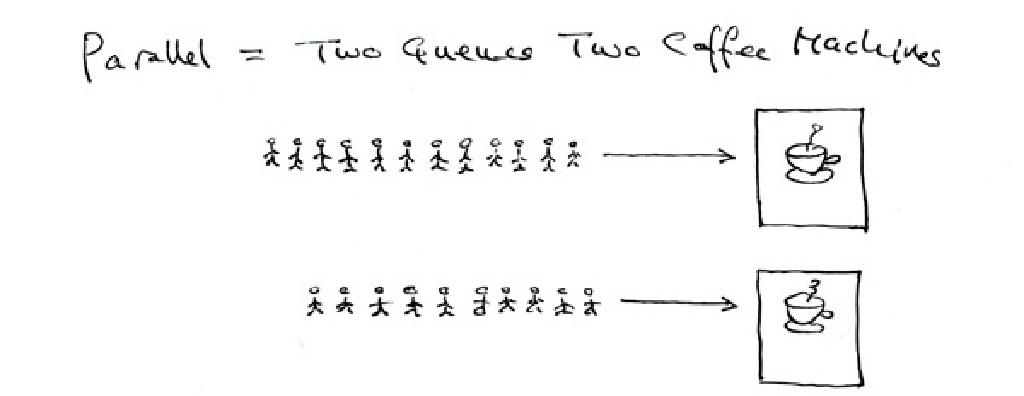 Parallel = Two Queues Two Coffee Machines